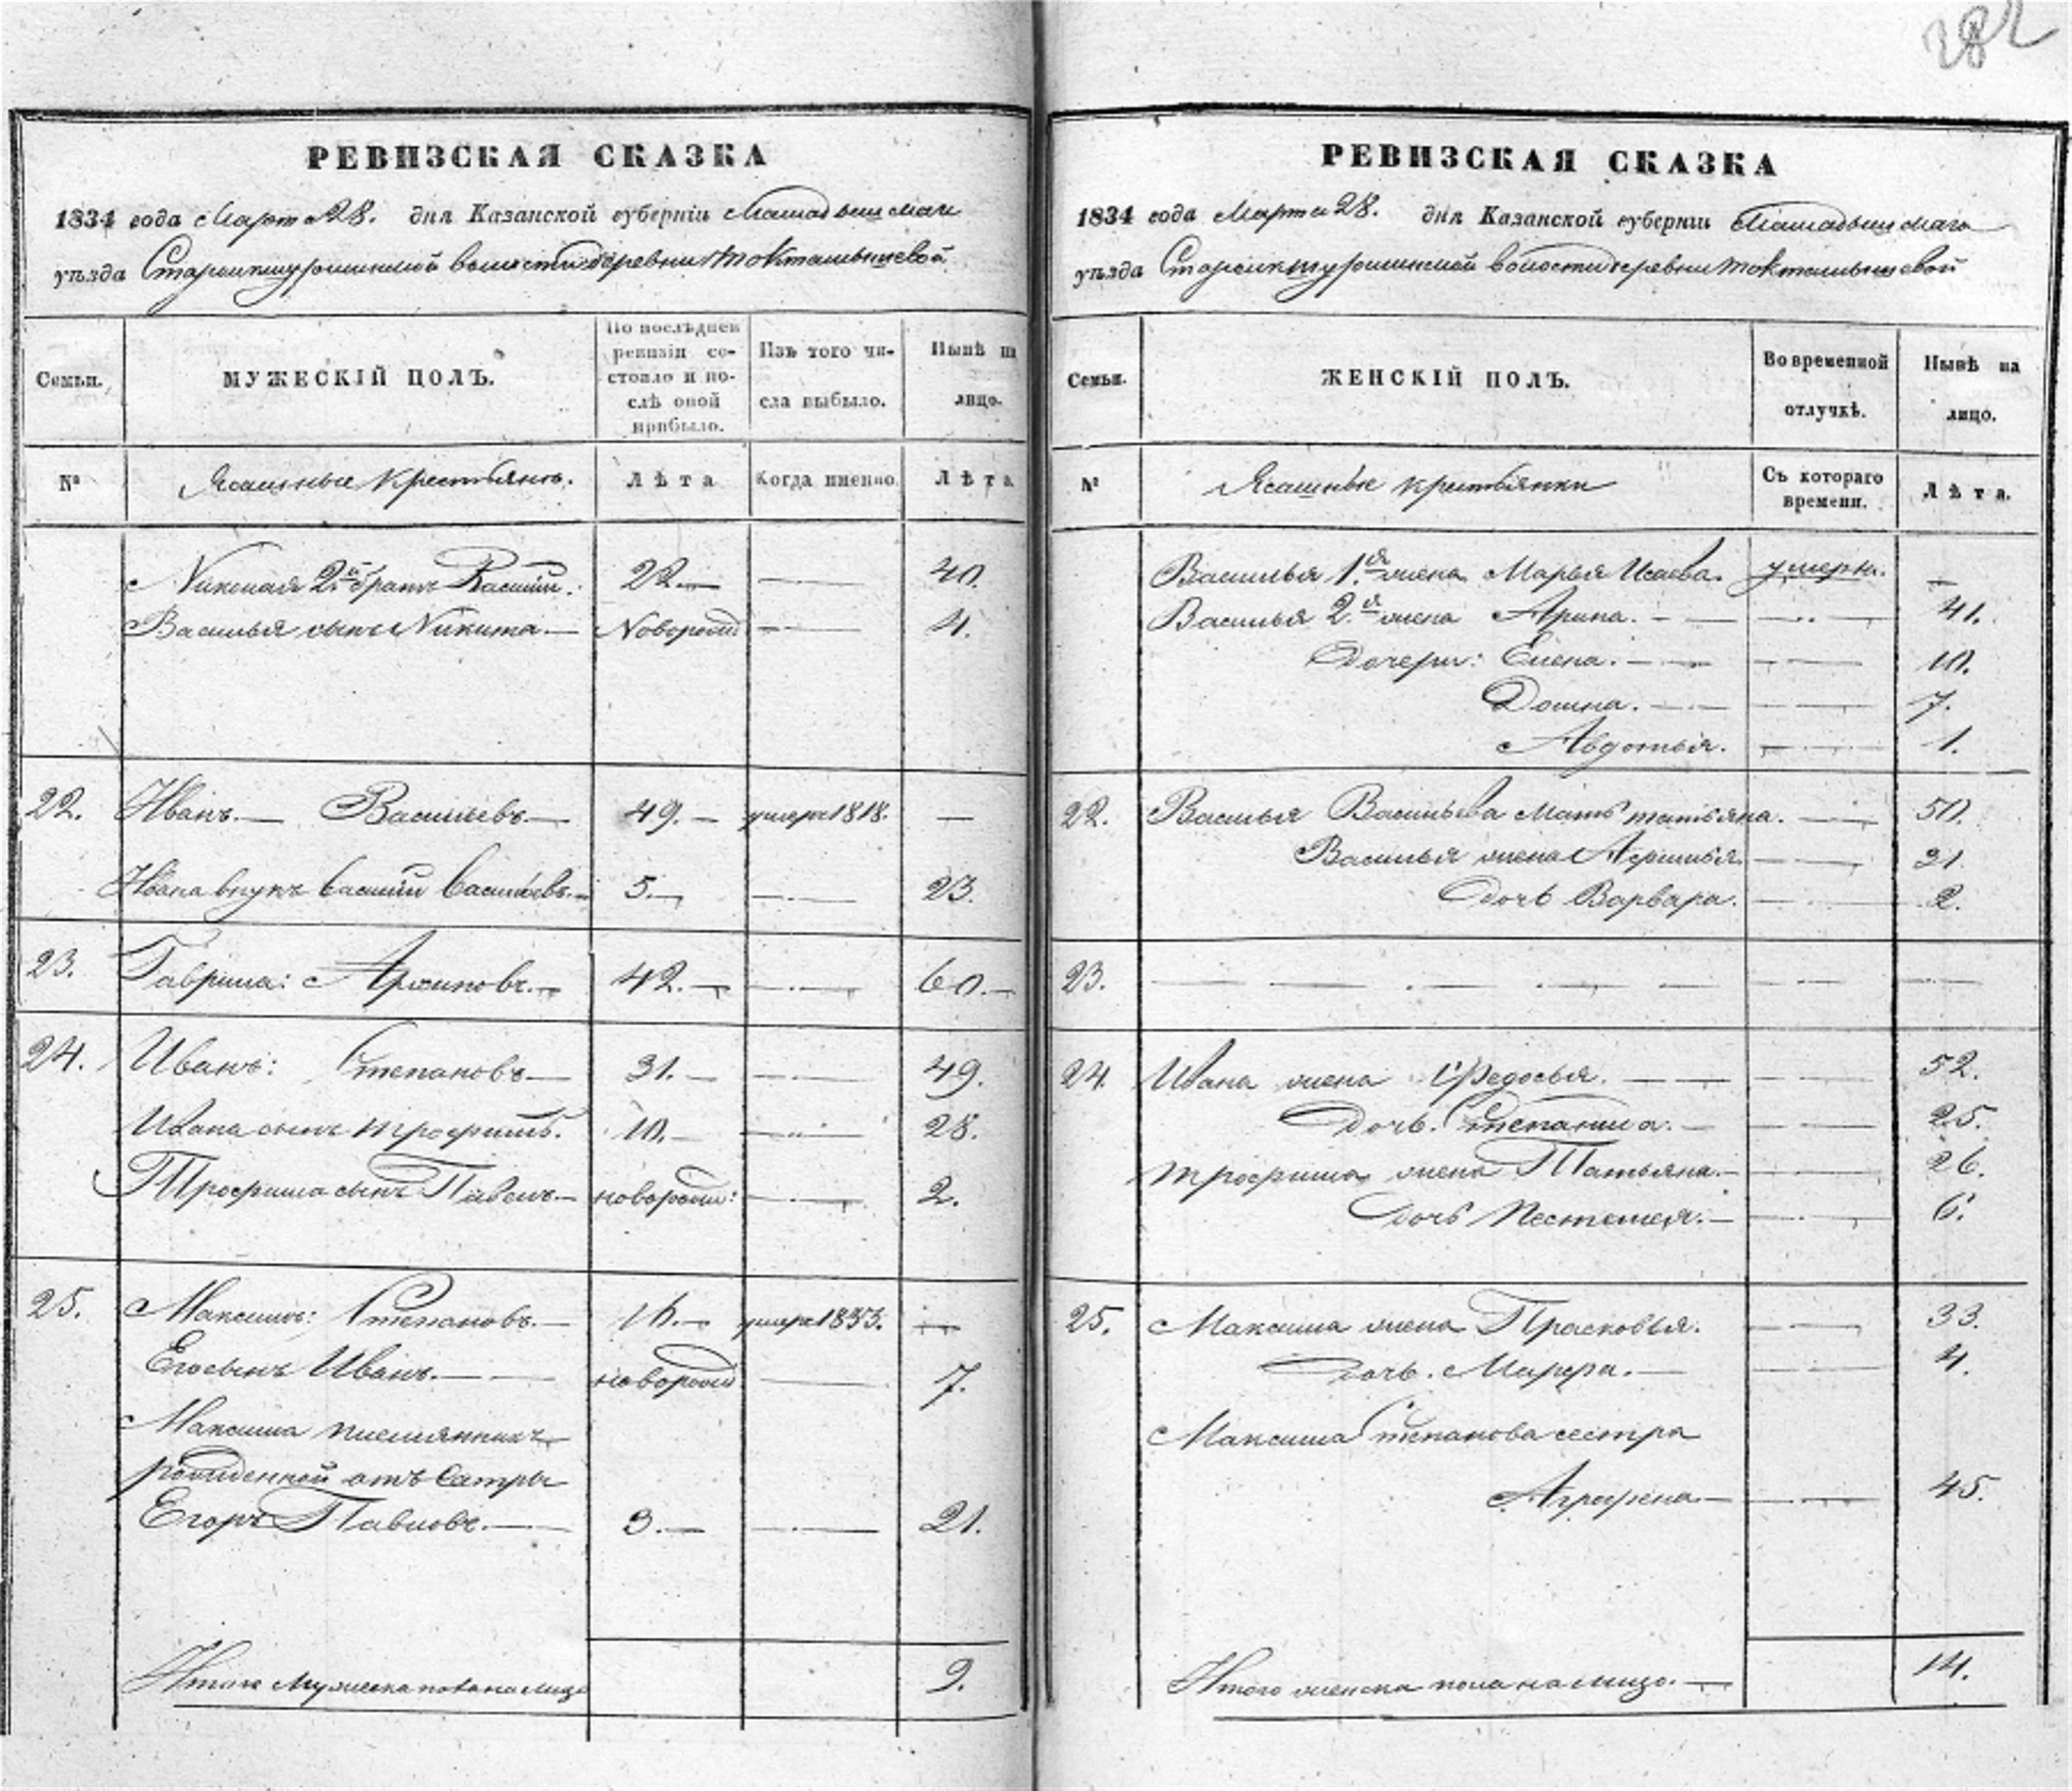 282
РЕВИЗСКАЯ СКАЗКА
1834 года Марта 28. дня Казанской губерніи Мамадышскаго
уѣзда волости деревни Токташышевой
Семьи.
МУЖЕСКІЙ ПОЛЪ.
По послѣдней ревизіи состояло и послѣ оной прибыло.
Изъ того числа выбыло.
Нынѣ на лицо.
№
Ясашные крестьянъ.
Лѣта
Когда именно
Лѣта
Николая 2й братъ Василій. 22. — 40.
Василья сынъ Никита. — Новорожд — 4.
22. Иванъ. — Васильевъ. — 49. — умеръ 1818. —
Ивана внукъ Василій Васильевъ. — 5. — 23.
23. Гаврила: Архиповъ. — 42. — 60. —
24. Иванъ: Степановъ — 31. — 49.
Ивана сынъ Трофимъ. 10. — 28.
Трофима сынъ Павелъ. — новорожд: — 2.
25. Максимъ: Степановъ. — 16. — умеръ 1833. —
Его сынъ Иванъ. — новорожд — 7.
Максима племянникъ
рожденной отъ сестры
Егоръ Павловъ. — 3. — 21.
Итого Мужеска пола на лицо 9.
РЕВИЗСКАЯ СКАЗКА
1834 года Марта 28. дня Казанской губерніи Мамадышскаго
уѣзда волости деревни Токташышевой
Семьи.
ЖЕНСКІЙ ПОЛЪ.
Во временной отлучкѣ.
Нынѣ на лицо.
№
Ясашные крестьянки
Съ котораго времени.
Лѣта.
Василья 1.я жена Марья Исаева. умерла. —
Василья 2.я жена Арина. — 41.
Дочери: Елена. — 10.
Домна. — 7.
Авдотья. — 1.
22. Василья Васильева мать татьяна. — 50.
Василья жена — 21.
дочь Варвара. — 2.
23. — — —
24. Ивана жена Федосья. — 52.
Дочь. Степанида. — 25.
трофима жена Татьяна. — 26.
дочь — 6.
25. Максима жена Прасковья. — 33.
Дочь. Марфа. — 4.
Максима Степанова сестра
Аграфена — 45.
Итого женска пола на лицо. — 14.